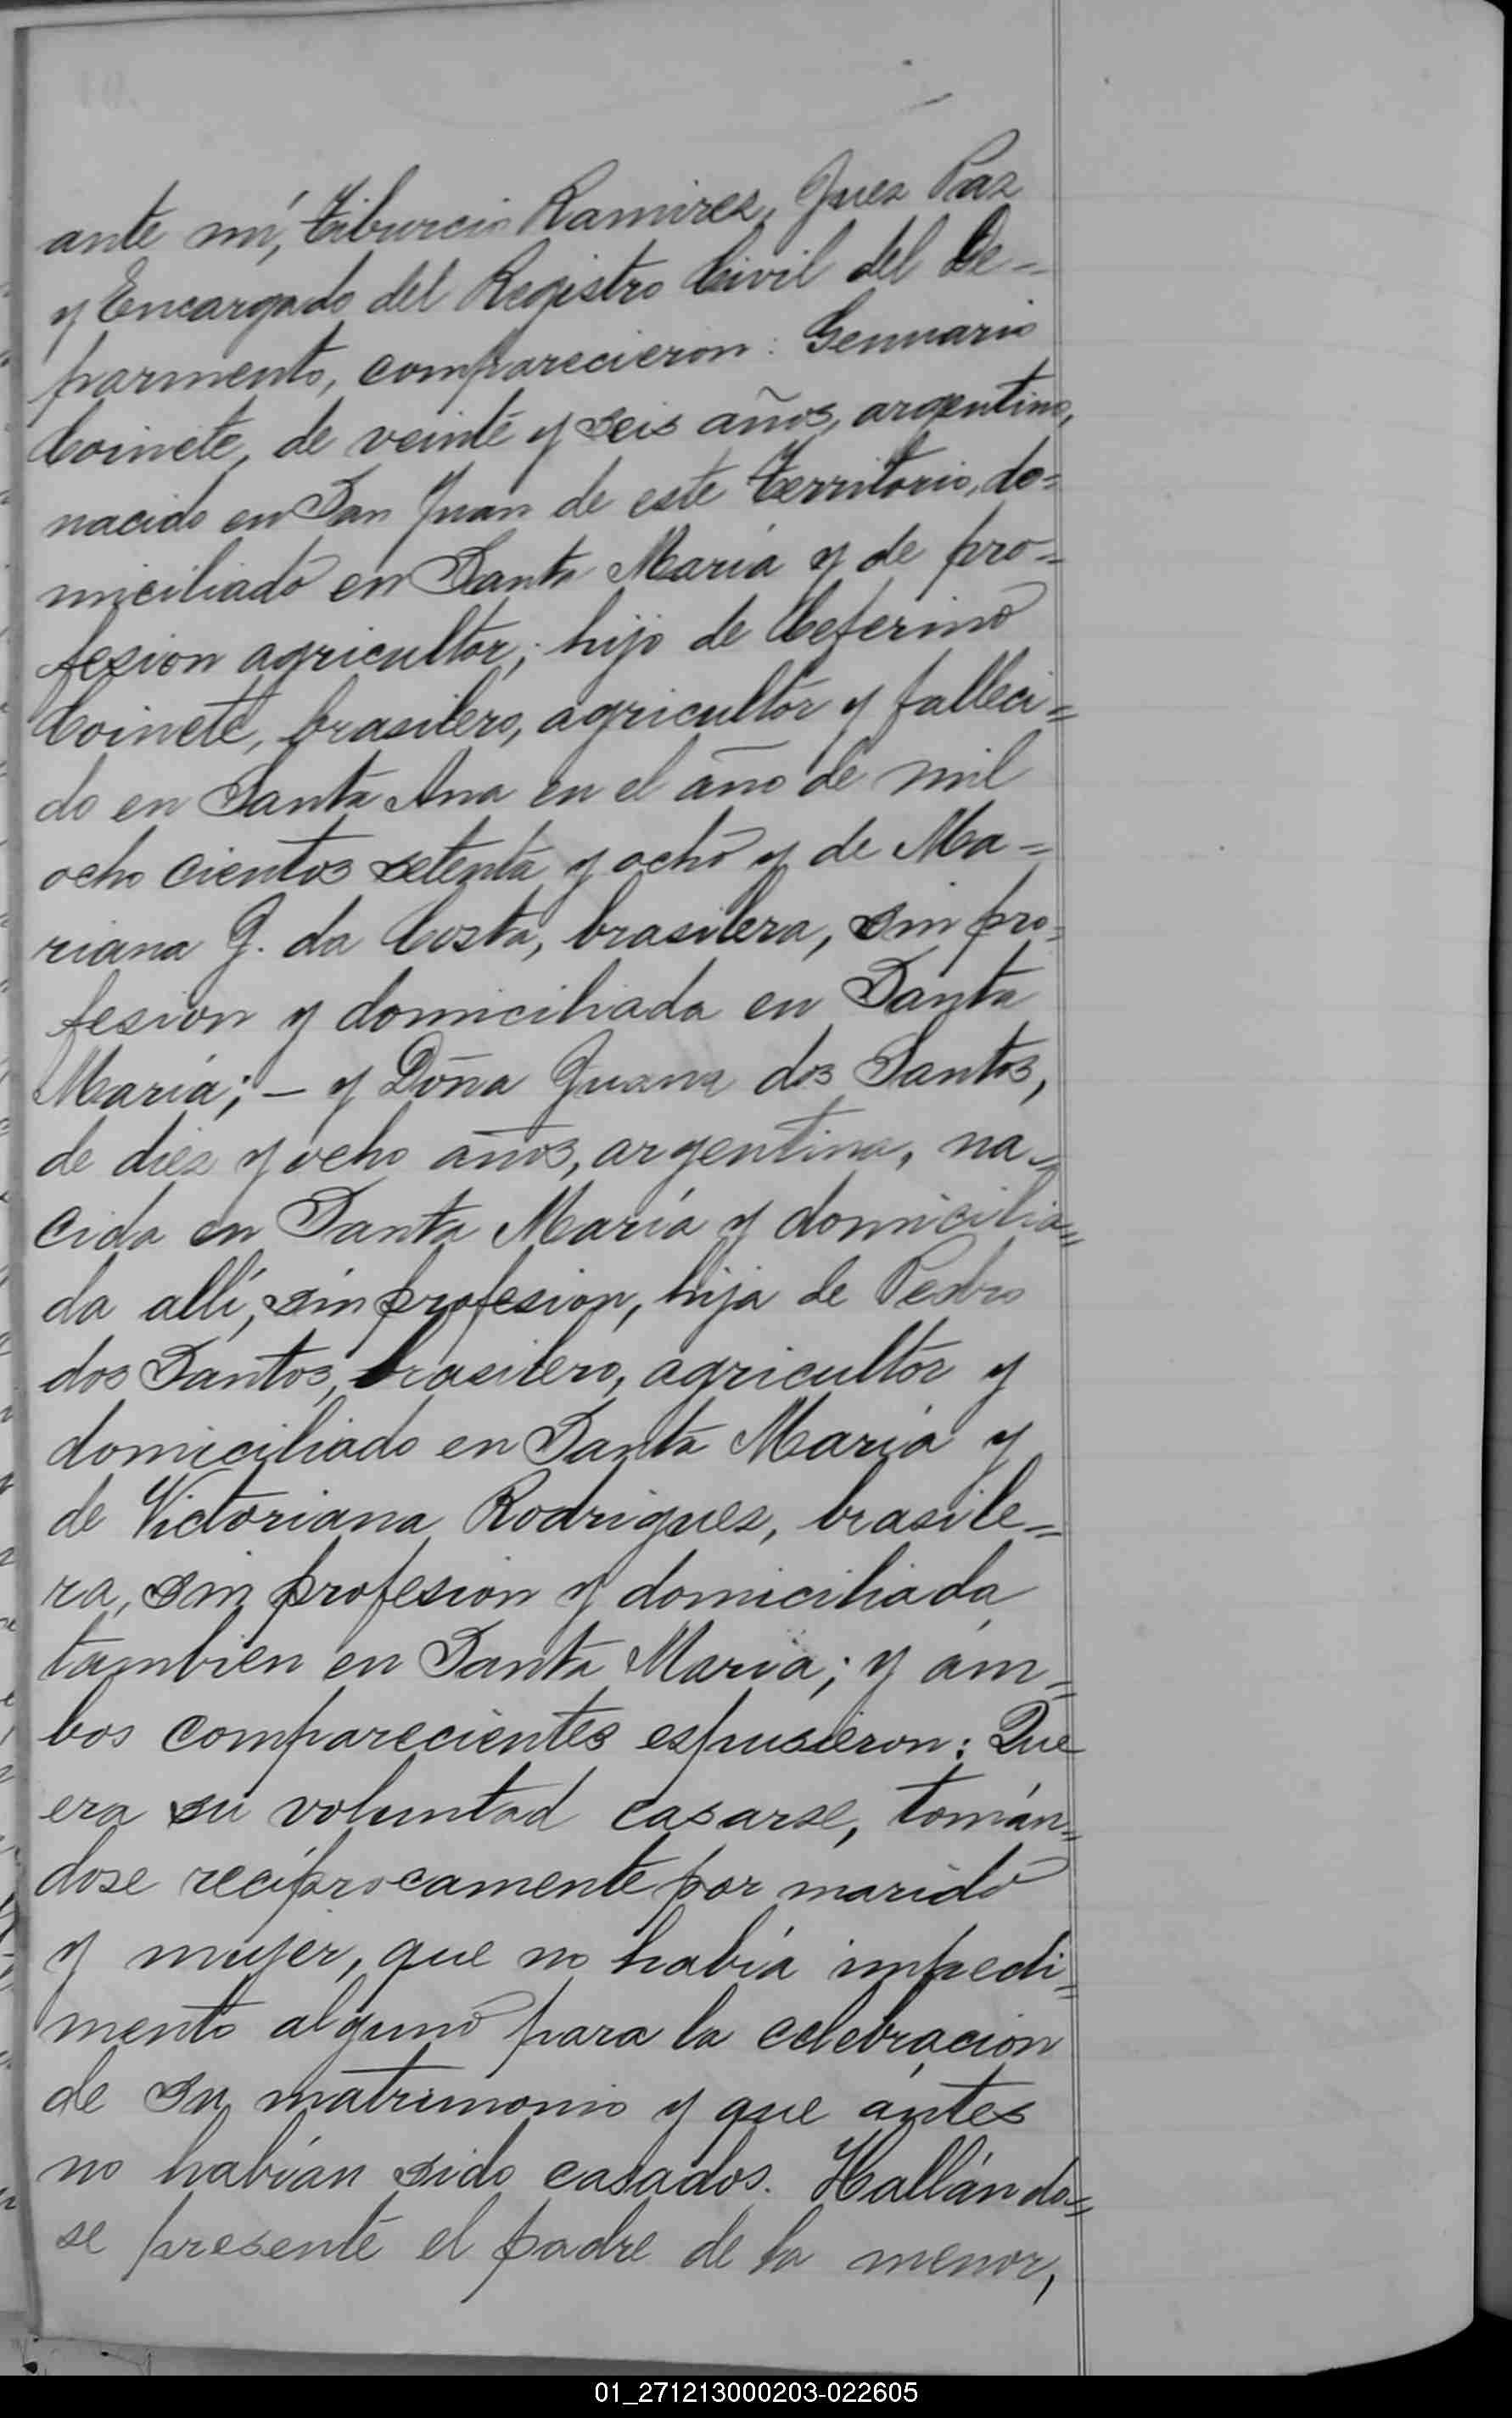 ante mí, Tiburcio Ramirez, Juez Paz
y Encargado del Registro Civil del De-
parmento, comparecieron: Gennario
Coinete, de veinte y seis años, argentino,
nacido en San Juan de este Territorio, do=
miciliado en Santa María y de pro=
fesion agricultor; hijo de Ceferino
Coinete, brasilero, agricultor y falleci=
do en Santa Ana en el año de mil
ocho cientos setenta y ocho y de Ma=
riana G. da Costa, brasilera, sin pro=
fesion y domiciliada en Santa
María; - y Doña Juana dos Santos,
de diez y ocho años, argentina, na=
cida en Santa María y domicilia=
da allí, sin profesion, hija de Pedro
dos Santos, brasilero, agricultor y
domiciliado en Santa María y
de Victoriana Rodriguez, brasile=
ra, sin profesion y domiciliada
tambien en Santa María; y ám=
bos comparecientes espusieron: Que
era su voluntad casarse, tomán=
dose recíprocamente por marido
y mujer, que no había impedi=
mento alguno para la celebracion
de su matrimonio y que ántes
no habían sido casados. Hallándo=
se presente el padre de la menor,
01_271213000203-022605